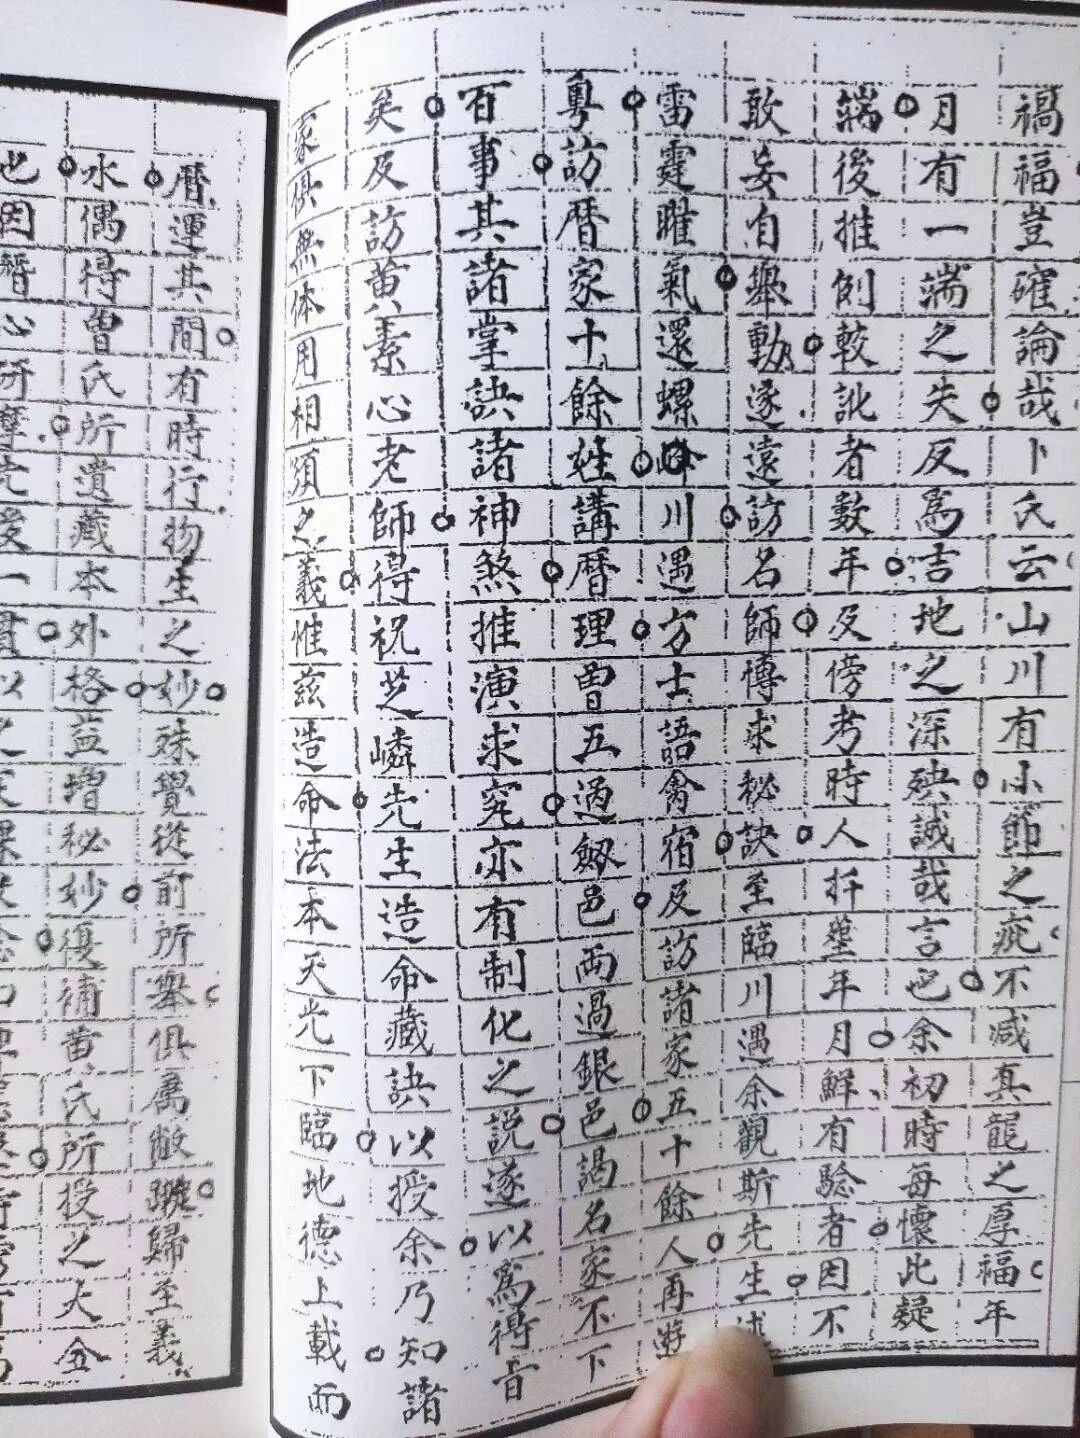 禍福豈確論哉卜氏云山川有小節之疵不减真龍之厚福年
月有一端之失反爲吉地之深殃誠哉言也余初時每懷此疑
端後推例較訛者數年及傍考時人扦塟年月鮮有驗者因不
敢妄自舉動遂遠訪名師博求秘訣至臨川遇余觀斯先生
雷霆睢氣還螺川遇方士語禽宿及訪諸家五十餘人再遊
粤訪暦家十餘姓講暦理曽五過劔邑兩過銀邑謁名家不下
百事其諸掌訣諸神煞推演求究亦有制化之説遂以爲得音
矣及訪黄素心老師得祝芝嶙先生造命藏訣以授余乃知諸
家俱無体用相須之義惟兹造命法本天光下臨地德上載而
暦運其間有時行物生之妙殊覺從前所舉俱属敝蹤歸至義
水偶得曽氏所遺藏本外格益增秘妙復補黄氏所授之大全
也因暦心研摩